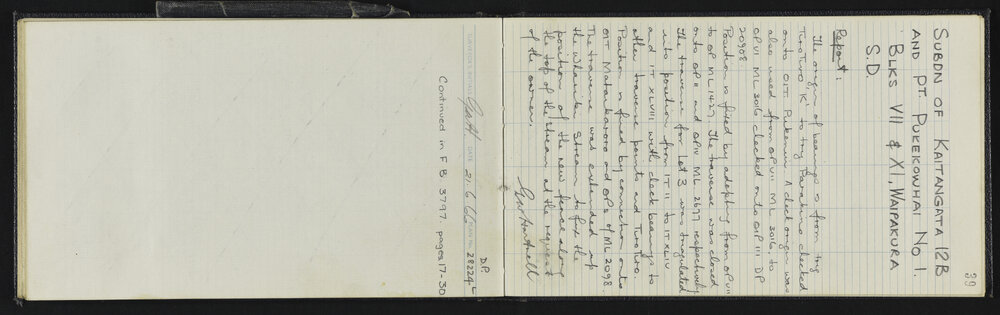 39
SUBDN OF KAITANGATA 12B
AND PT. PUKEKOWHAI NO 1.
BLKS VII & XI, WAIPAKURA
S.D.
Report:
The origin of bearings is from trig
Tirotiro 'K' to trig Parakino checked
onto OIT. Pukenui. A check origin was
also used from OP VII ML 3016 to
OP VI ML 3016 checked onto OIP III DP
20908.
Position is fixed by adopting from OP VII
to OP ML 1427. The traverse was closed
onto OP II and OP IV ML 2697 respectively
The traverse for Lot 3 was triangulated
into position from IT II to IT XLIV
and IT XLVIII with check bearings to
other traverse points and Tirotiro.
Position is fixed by connection onto
OIT Mataikaroro and OPs of ML 2098
The traverse was extended up
the Wharariki Stream to fix the
position of the new fence along
the top of the stream at the request
of the owner.
DATE 21.6.66
D.P.
28224
Continued in F B 3797. pages 17-30